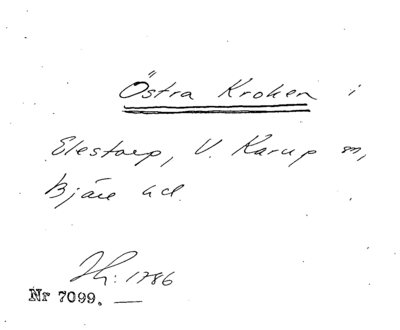 Östra Kroken i
Elestorp, V. Karup sn,
Bjäre hd.
Jh: 1786
Nr 7099. —